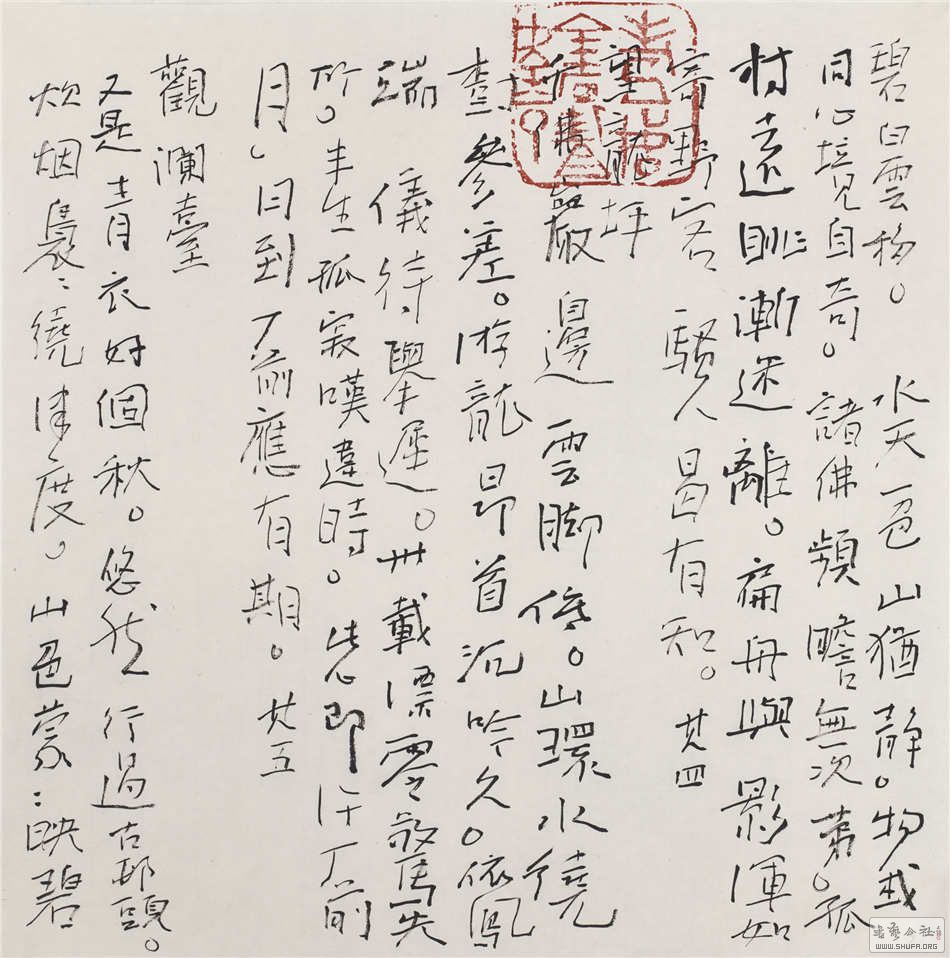 碧白雲移。水天一色山猶静。物我
同心境見自奇。諸佛頻瞻無次第。孤
村遠眺漸迷離。扁舟與影渾如
寄野客騷人曷有知。其四
望龍坪
佛巖邊雲脚低。山環水繞
參差。游龍昂首沉吟久。依鳳
端儀待舉遲。卅載漂零驚失
所。半生孤寂嘆違時。即許前
月日到前應有期。其五
觀瀾臺
又是青衣好個秋。悠然行過古邨頭。
炊烟裊〻繞津度。山色蒙〻映碧
WWW.SHUFA.ORG